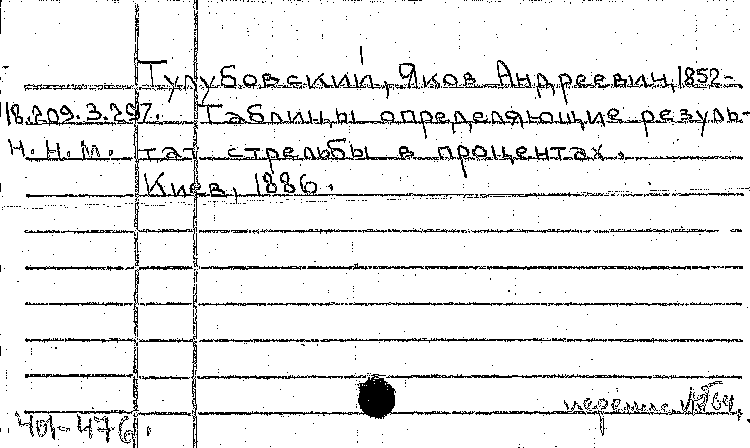 Тулубовский, Яков Андреевич, 1852-
18.209.3.297. Таблицы определяющие резуль-
Н.Н.М. тат стрельбы в процентах.
Киев, 1886.
401-476.